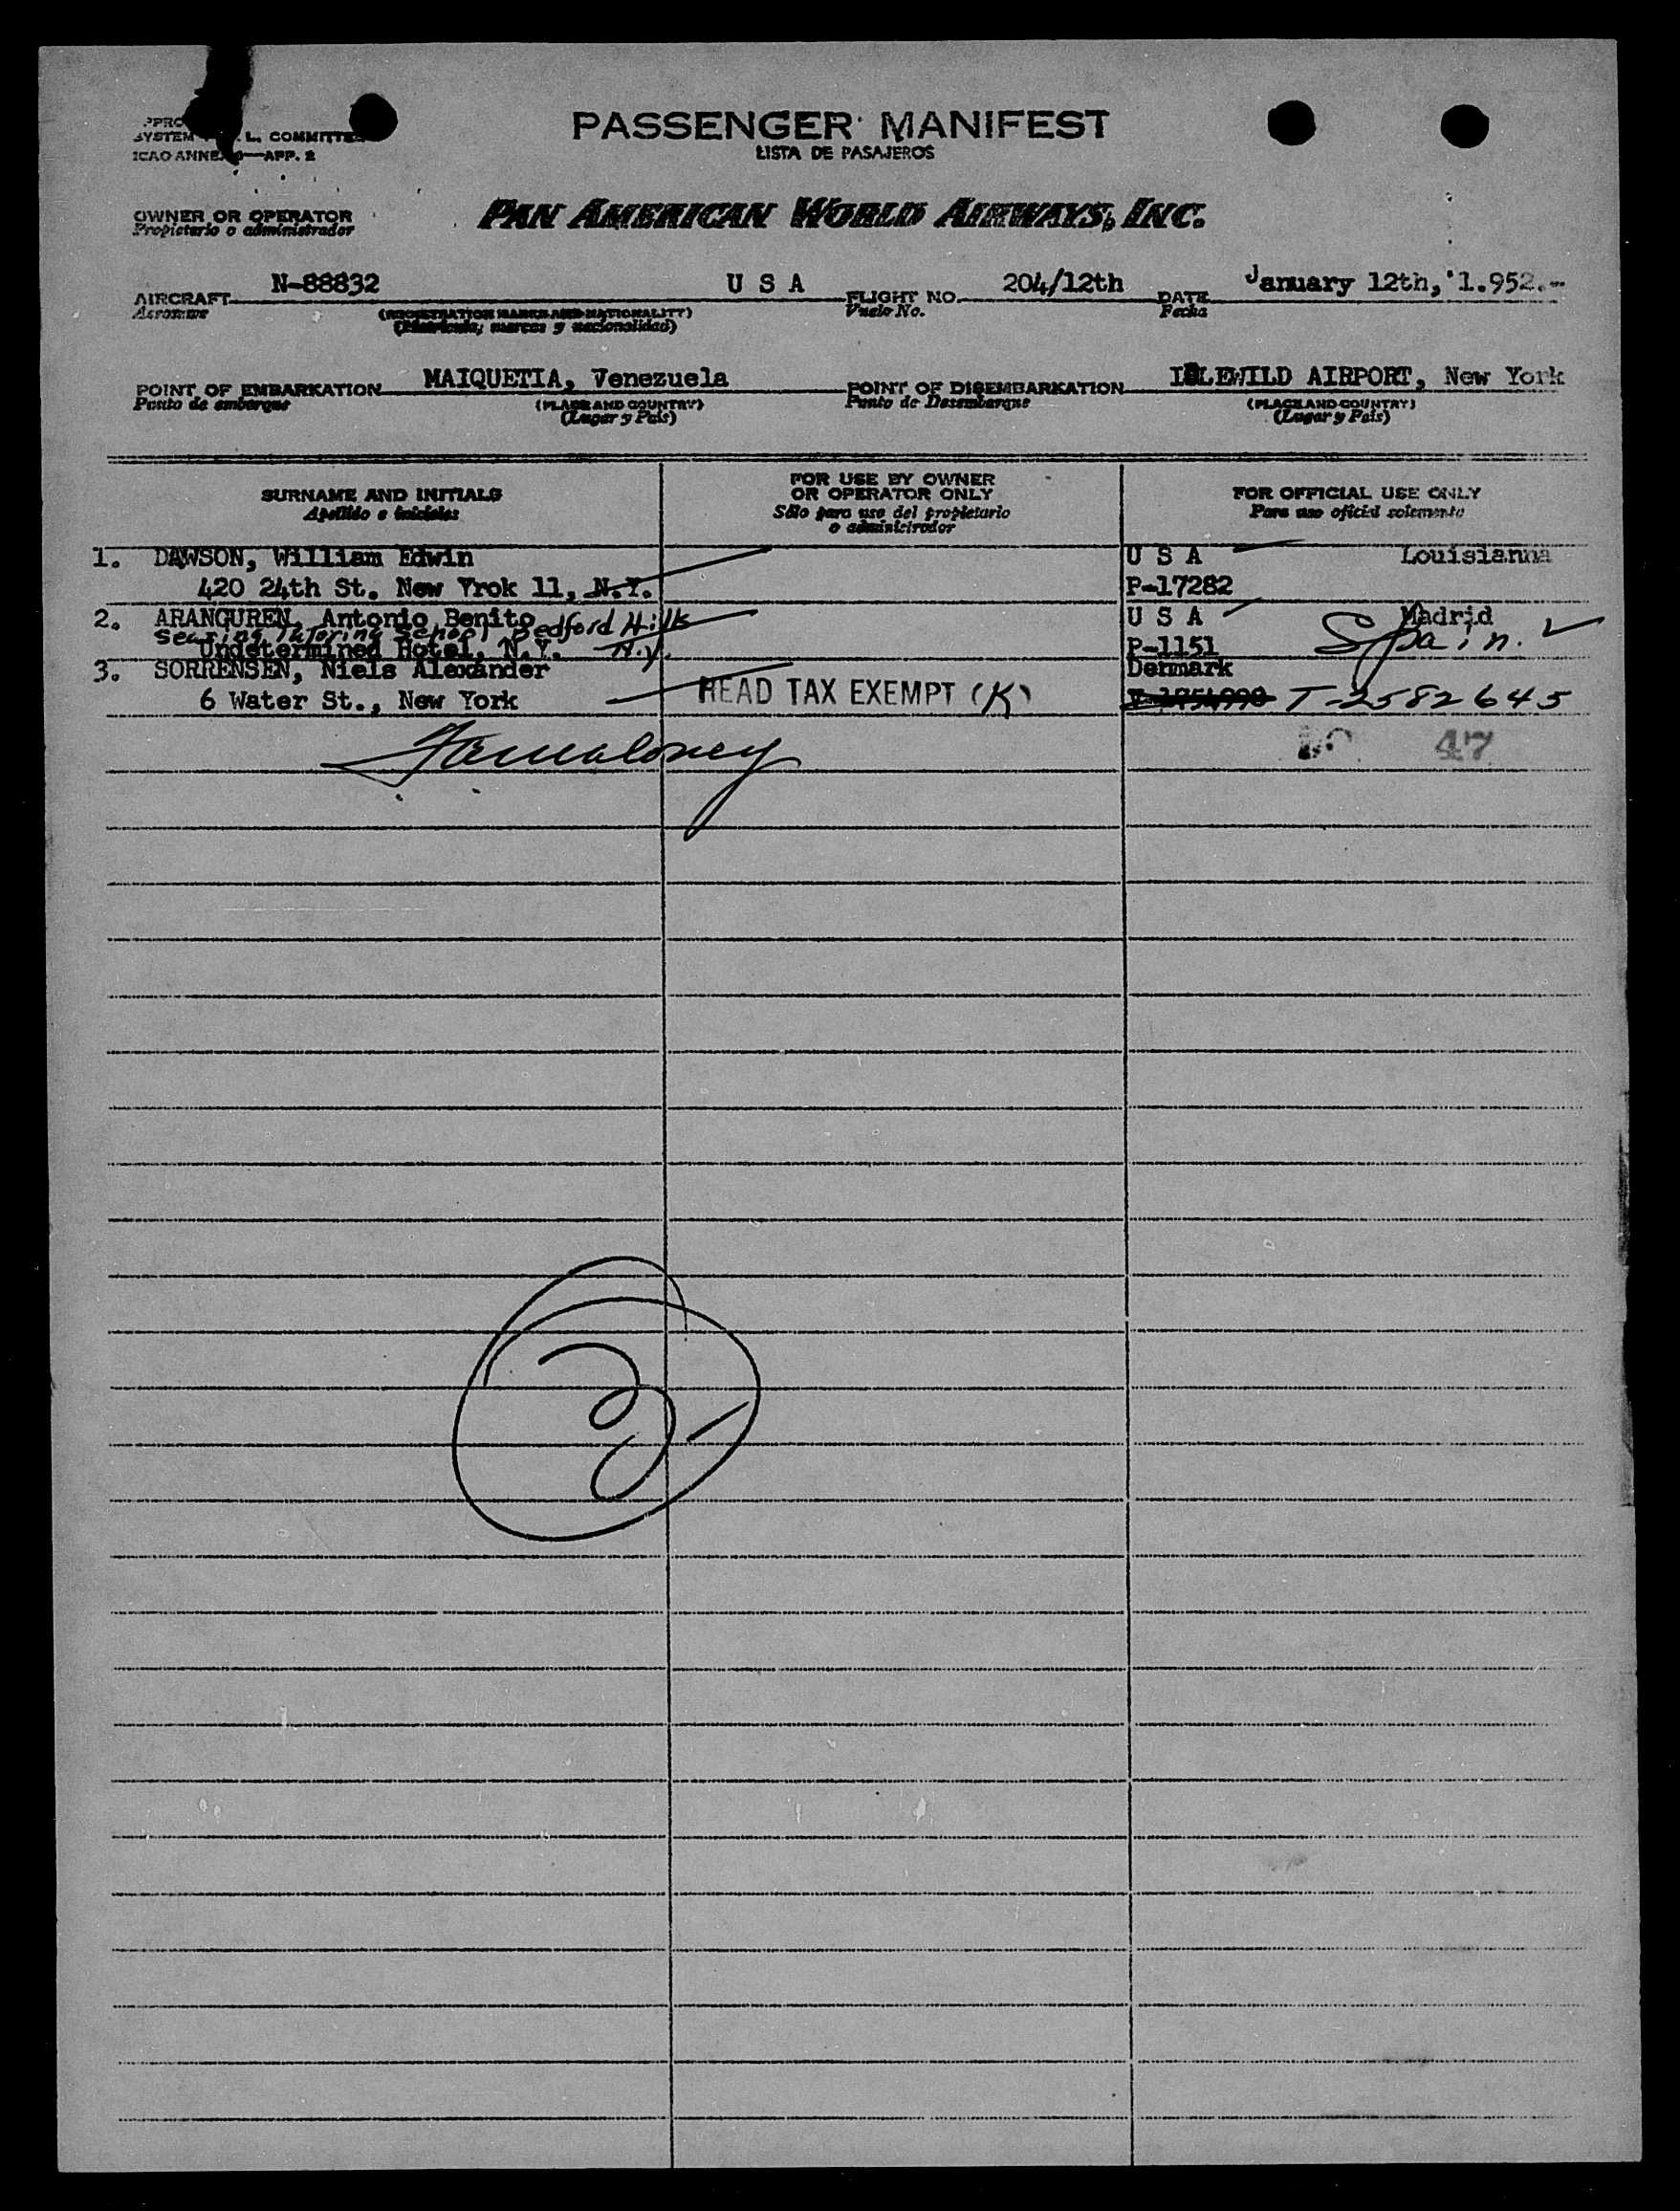 PASSENGER MANIFEST
LISTA DE PASAJEROS
SYSTEM L. COMMITTEE
ICAO ANNEX 9—APP. 2
OWNER OR OPERATOR
Propietario o administrador
PAN AMERICAN WORLD AIRWAYS, INC.
AIRCRAFT N-88832 U S A FLIGHT NO. 204/12th DATE January 12th, 1.952.-
Aeronave (REGISTRATION MARKS AND NATIONALITY) Vuelo No. Fecha
(Matrícula, marcas y nacionalidad)
POINT OF EMBARKATION MAIQUETIA, Venezuela POINT OF DISEMBARKATION IDLEWILD AIRPORT, New York
Punto de embarque (PLACE AND COUNTRY) Punto de Desembarque (PLACE AND COUNTRY)
(Lugar y País) (Lugar y País)
SURNAME AND INITIALS
Apellido e iniciales
FOR USE BY OWNER
OR OPERATOR ONLY
Sólo para uso del propietario
o administrador
FOR OFFICIAL USE ONLY
Para uso oficial solamente
1. DAWSON, William Edwin U S A Louisianna
420 24th St. New Yrok 11, N.Y. P-17282
2. ARANGUREN, Antonio Benito U S A Madrid
Searing Tutoring School Bedford Hills N.Y. Spain.
Undetermined Hotel, N.Y. P-1151
3. SORRENSEN, Niels Alexander Denmark
6 Water St., New York HEAD TAX EXEMPT (K) T-2582645
47
3